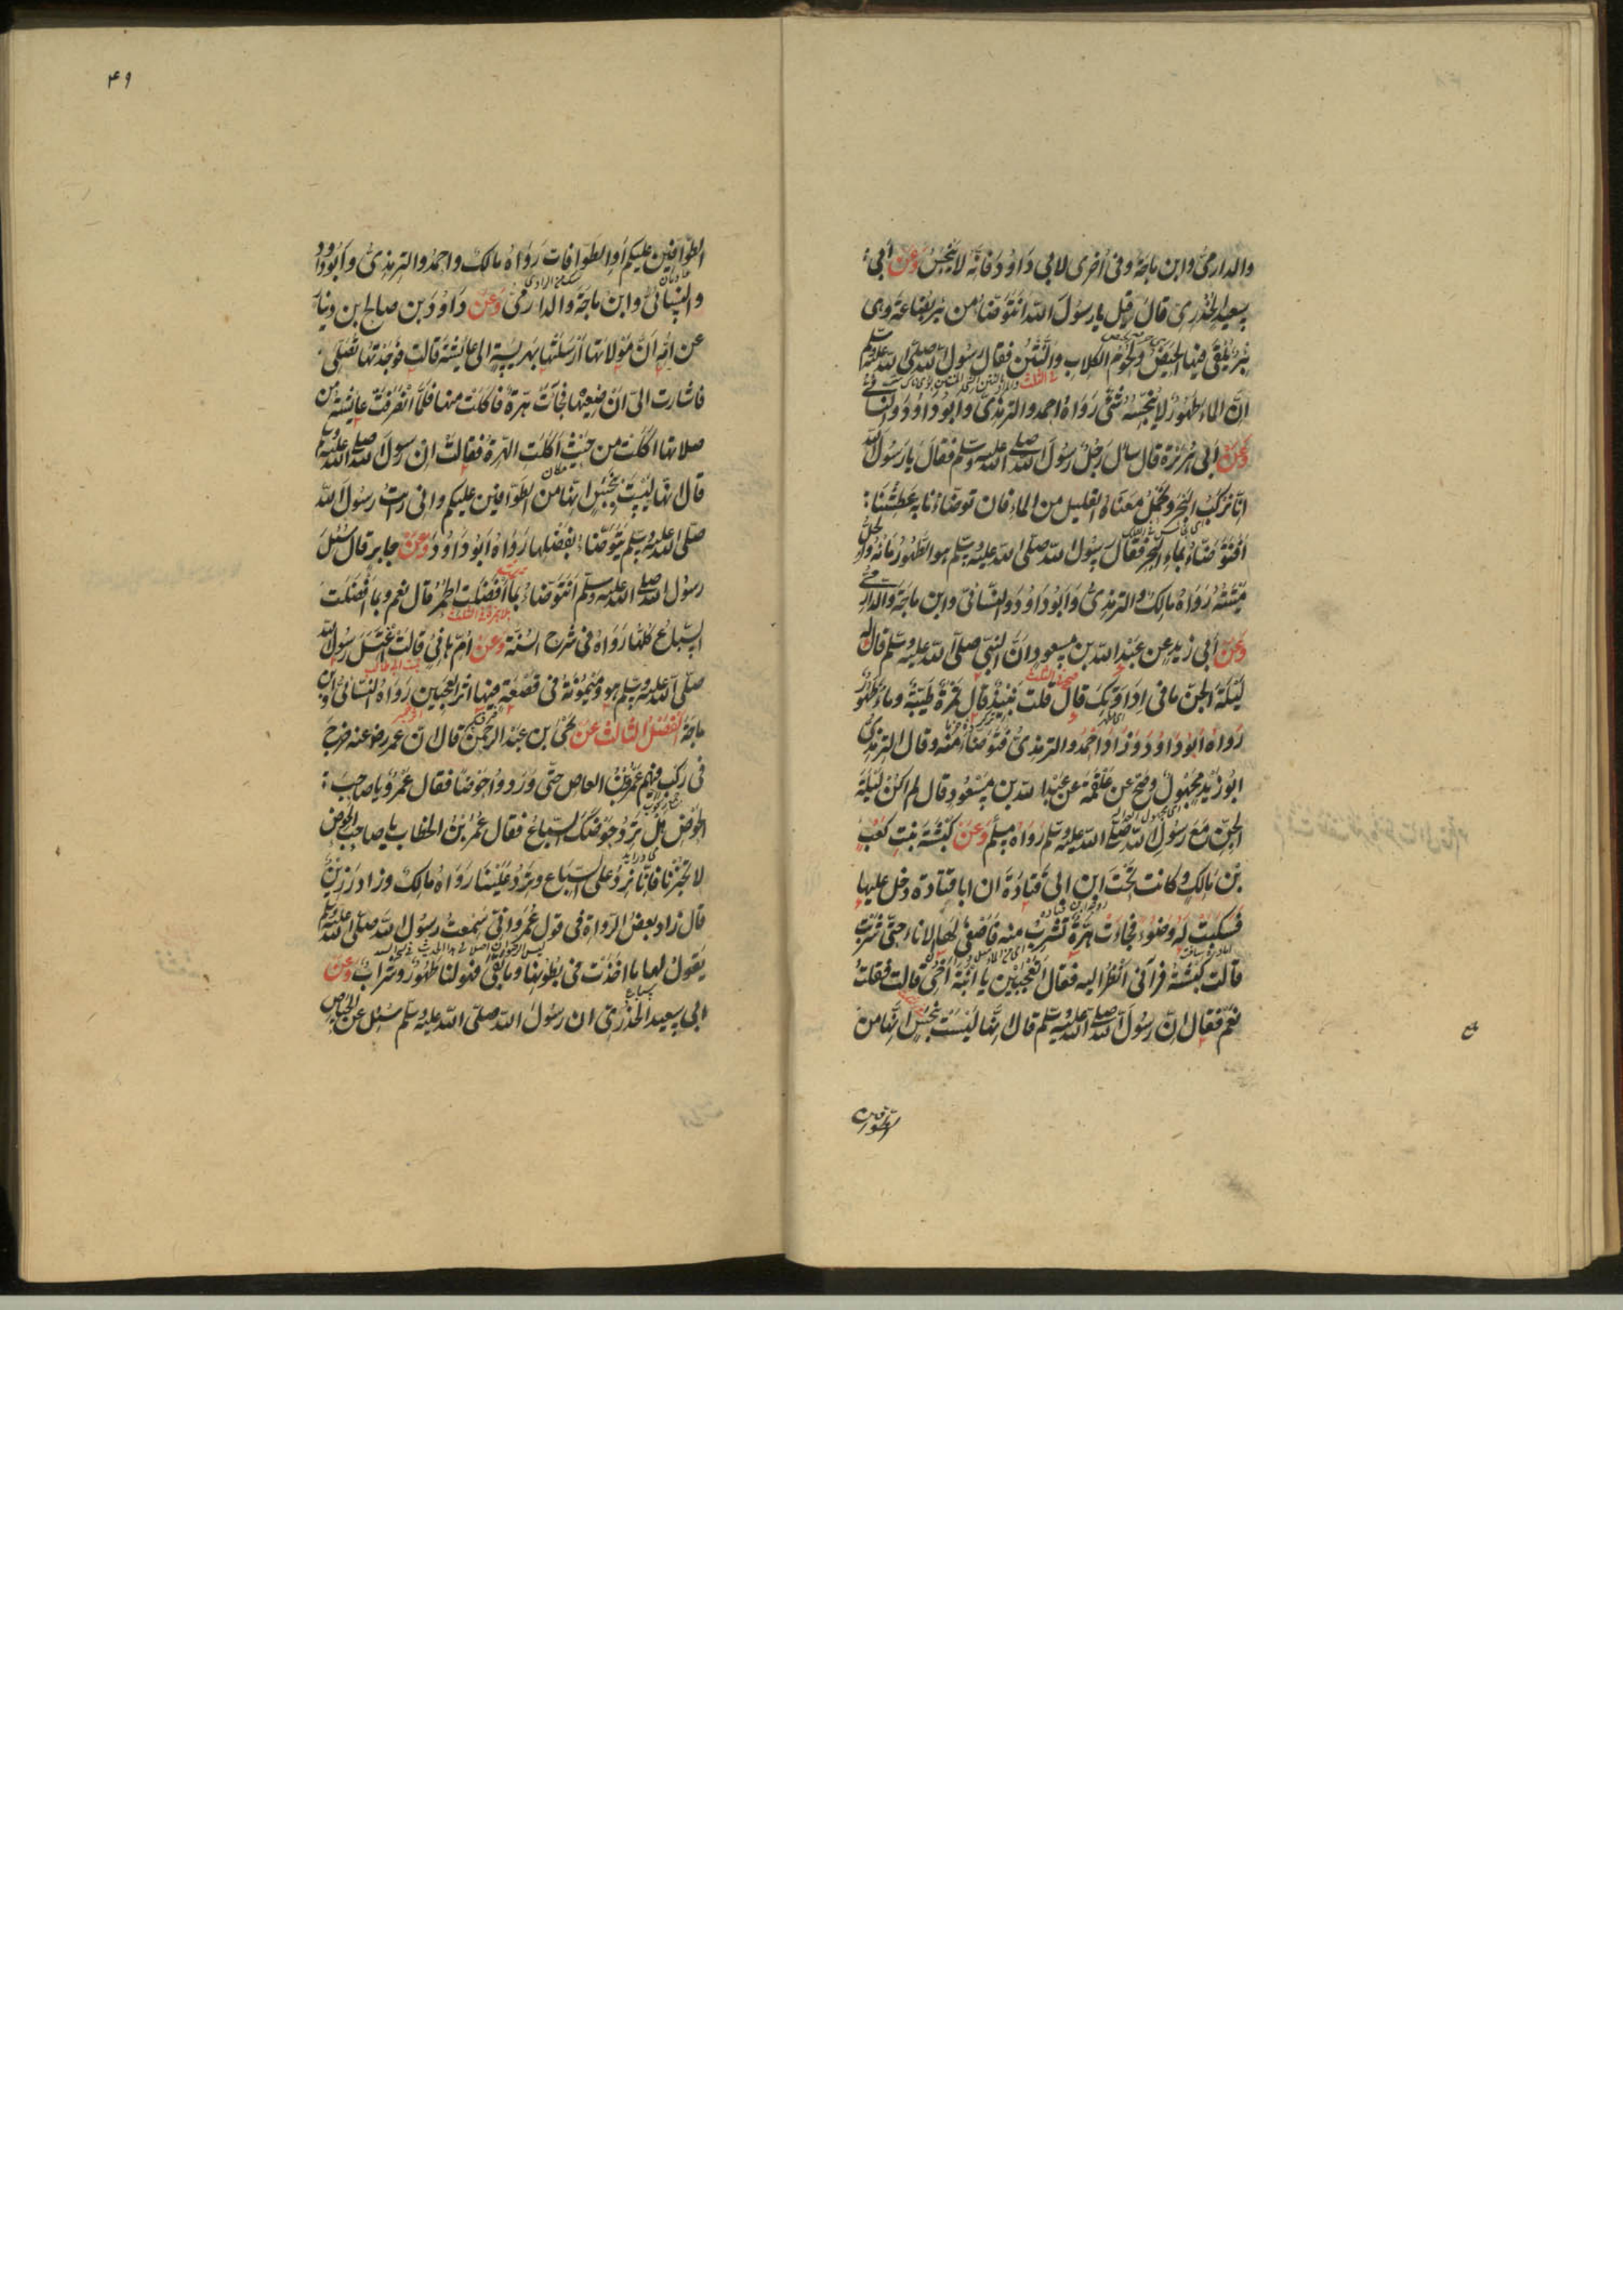 والدارمی وابن ماجة وفی اخری لابی داود فانه لا ینجس وعن ابی
سعید الخدری قال قیل یا رسول الله انتوضأ من بئر بضاعة وهی
بئر یلقی فیها الحیض ولحوم الکلاب والنتن فقال رسول الله صلی الله علیه وسلم
ان الماء طهور لا ینجسه شئ رواه احمد والترمذی وابو داود والنسائی
وعن ابی هریرة قال سال رجل رسول الله صلی الله علیه وسلم فقال یا رسول الله
انا نرکب البحر ونحمل معناه القلیل من الماء فان توضأنا به عطشنا
افنتوضأ بماء البحر فقال رسول الله صلی الله علیه وسلم هو الطهور ماؤه والحل
میتته رواه مالک والترمذی وابو داود والنسائی وابن ماجة والدارمی
وعن ابی زید عن عبد الله بن مسعود ان النبی صلی الله علیه وسلم قال له
لیلة الجن ما فی اداوتک قال قلت نبیذ قال تمرة طیبة وماء طهور
رواه ابو داود وزاد احمد والترمذی فتوضأ منه وقال الترمذی
ابو زید مجهول وصح عن علقمة عن عبد الله بن مسعود قال لم اکن لیلة
الجن مع رسول الله صلی الله علیه وسلم رواه مسلم وعن کبشة بنت کعب
بن مالک وکانت تحت ابن ابی قتادة ان ابا قتادة دخل علیها
فسکبت له وضوء فجاءت هرة تشرب منه فاصغی لها الاناء حتی شربت
قالت کبشة فرآنی انظر الیه فقال اتعجبین یا ابنة اخی قالت فقلت
نعم فقال ان رسول الله صلی الله علیه وسلم قال انها لیست بنجس انها من
الطوافین
۴۹
الطوافین علیکم او الطوافات رواه مالک واحمد والترمذی وابو داود
والنسائی وابن ماجة والدارمی وعن داود بن صالح بن دینار
عن امه ان مولاتها ارسلتها بهریسة الی عایشة قالت فوجدتها تصلی
فاشارت الی ان ضعیها فجاءت هرة فاکلت منها فلما انصرفت عایشة من
صلاتها اکلت من حیث اکلت الهرة فقالت ان رسول الله صلی الله علیه وسلم
قال انها لیست بنجس انها من الطوافین علیکم وانی رایت رسول الله
صلی الله علیه وسلم یتوضأ بفضلها رواه ابو داود وعن جابر قال سئل
رسول الله صلی الله علیه وسلم انتوضأ بما افضلت الحمر قال نعم وبما افضلت
السباع کلها رواه فی شرح السنة وعن ام هانئ قالت اغتسل رسول الله
صلی الله علیه وسلم هو ومیمونة فی قصعة فیها اثر العجین رواه النسائی وابن
ماجة الفصل الثالث عن یحیی بن عبد الرحمن قال ان عمر رضی عنه خرج
فی رکب فیهم عمرو بن العاص حتی وردوا حوضا فقال عمرو یا صاحب
الحوض هل ترد حوضک السباع فقال عمر بن الخطاب یا صاحب الحوض
لا تخبرنا فانا نرد علی السباع وترد علینا رواه مالک وزاد رزین
قال زاد بعض الرواة فی قول عمر وانی سمعت رسول الله صلی الله علیه وسلم
یقول لها ما اخذت فی بطونها وما بقی فهو لنا طهور وشراب وعن
ابی سعید الخدری ان رسول الله صلی الله علیه وسلم سئل عن الحیاض